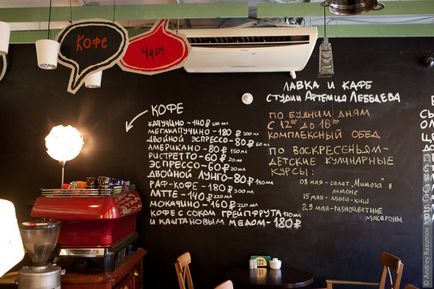 Кофе
Чай
ЛАВКА И КАФЕ
СТУДИИ АРТЕМИЯ ЛЕБЕДЕВА
КОФЕ
КАПУЧИНО - 140
МЕГАКАПУЧИНО - 180
ДВОЙНОЙ ЭСПРЕССО - 80
АМЕРИКАНО - 80
РИСТРЕТТО - 60
ЭСПРЕССО - 60
ДВОЙНОЙ ЛУНГО - 80
РАФ-КОФЕ - 180
ЛАТТЕ - 140
МОКАЧИНО - 160
КОФЕ С СОКОМ ГРЕЙПФРУТА
И КАШТАНОВЫМ МЕДОМ - 180
ПО БУДНИМ ДНЯМ
С 12 ДО 16
КОМПЛЕКСНЫЙ ОБЕД
ПО ВОСКРЕСЕНЬЯМ-
ДЕТСКИЕ КУЛИНАРНЫЕ
КУРСЫ:
08 МАЯ - САЛАТ "Мимоза" В
ЛИМОНЕ
15 МАЯ - МИНИ-КИШ
МАЯ - РАЗНОЦВЕТНЫЕ
МАКАРОНЫ
© Andrey Razumov